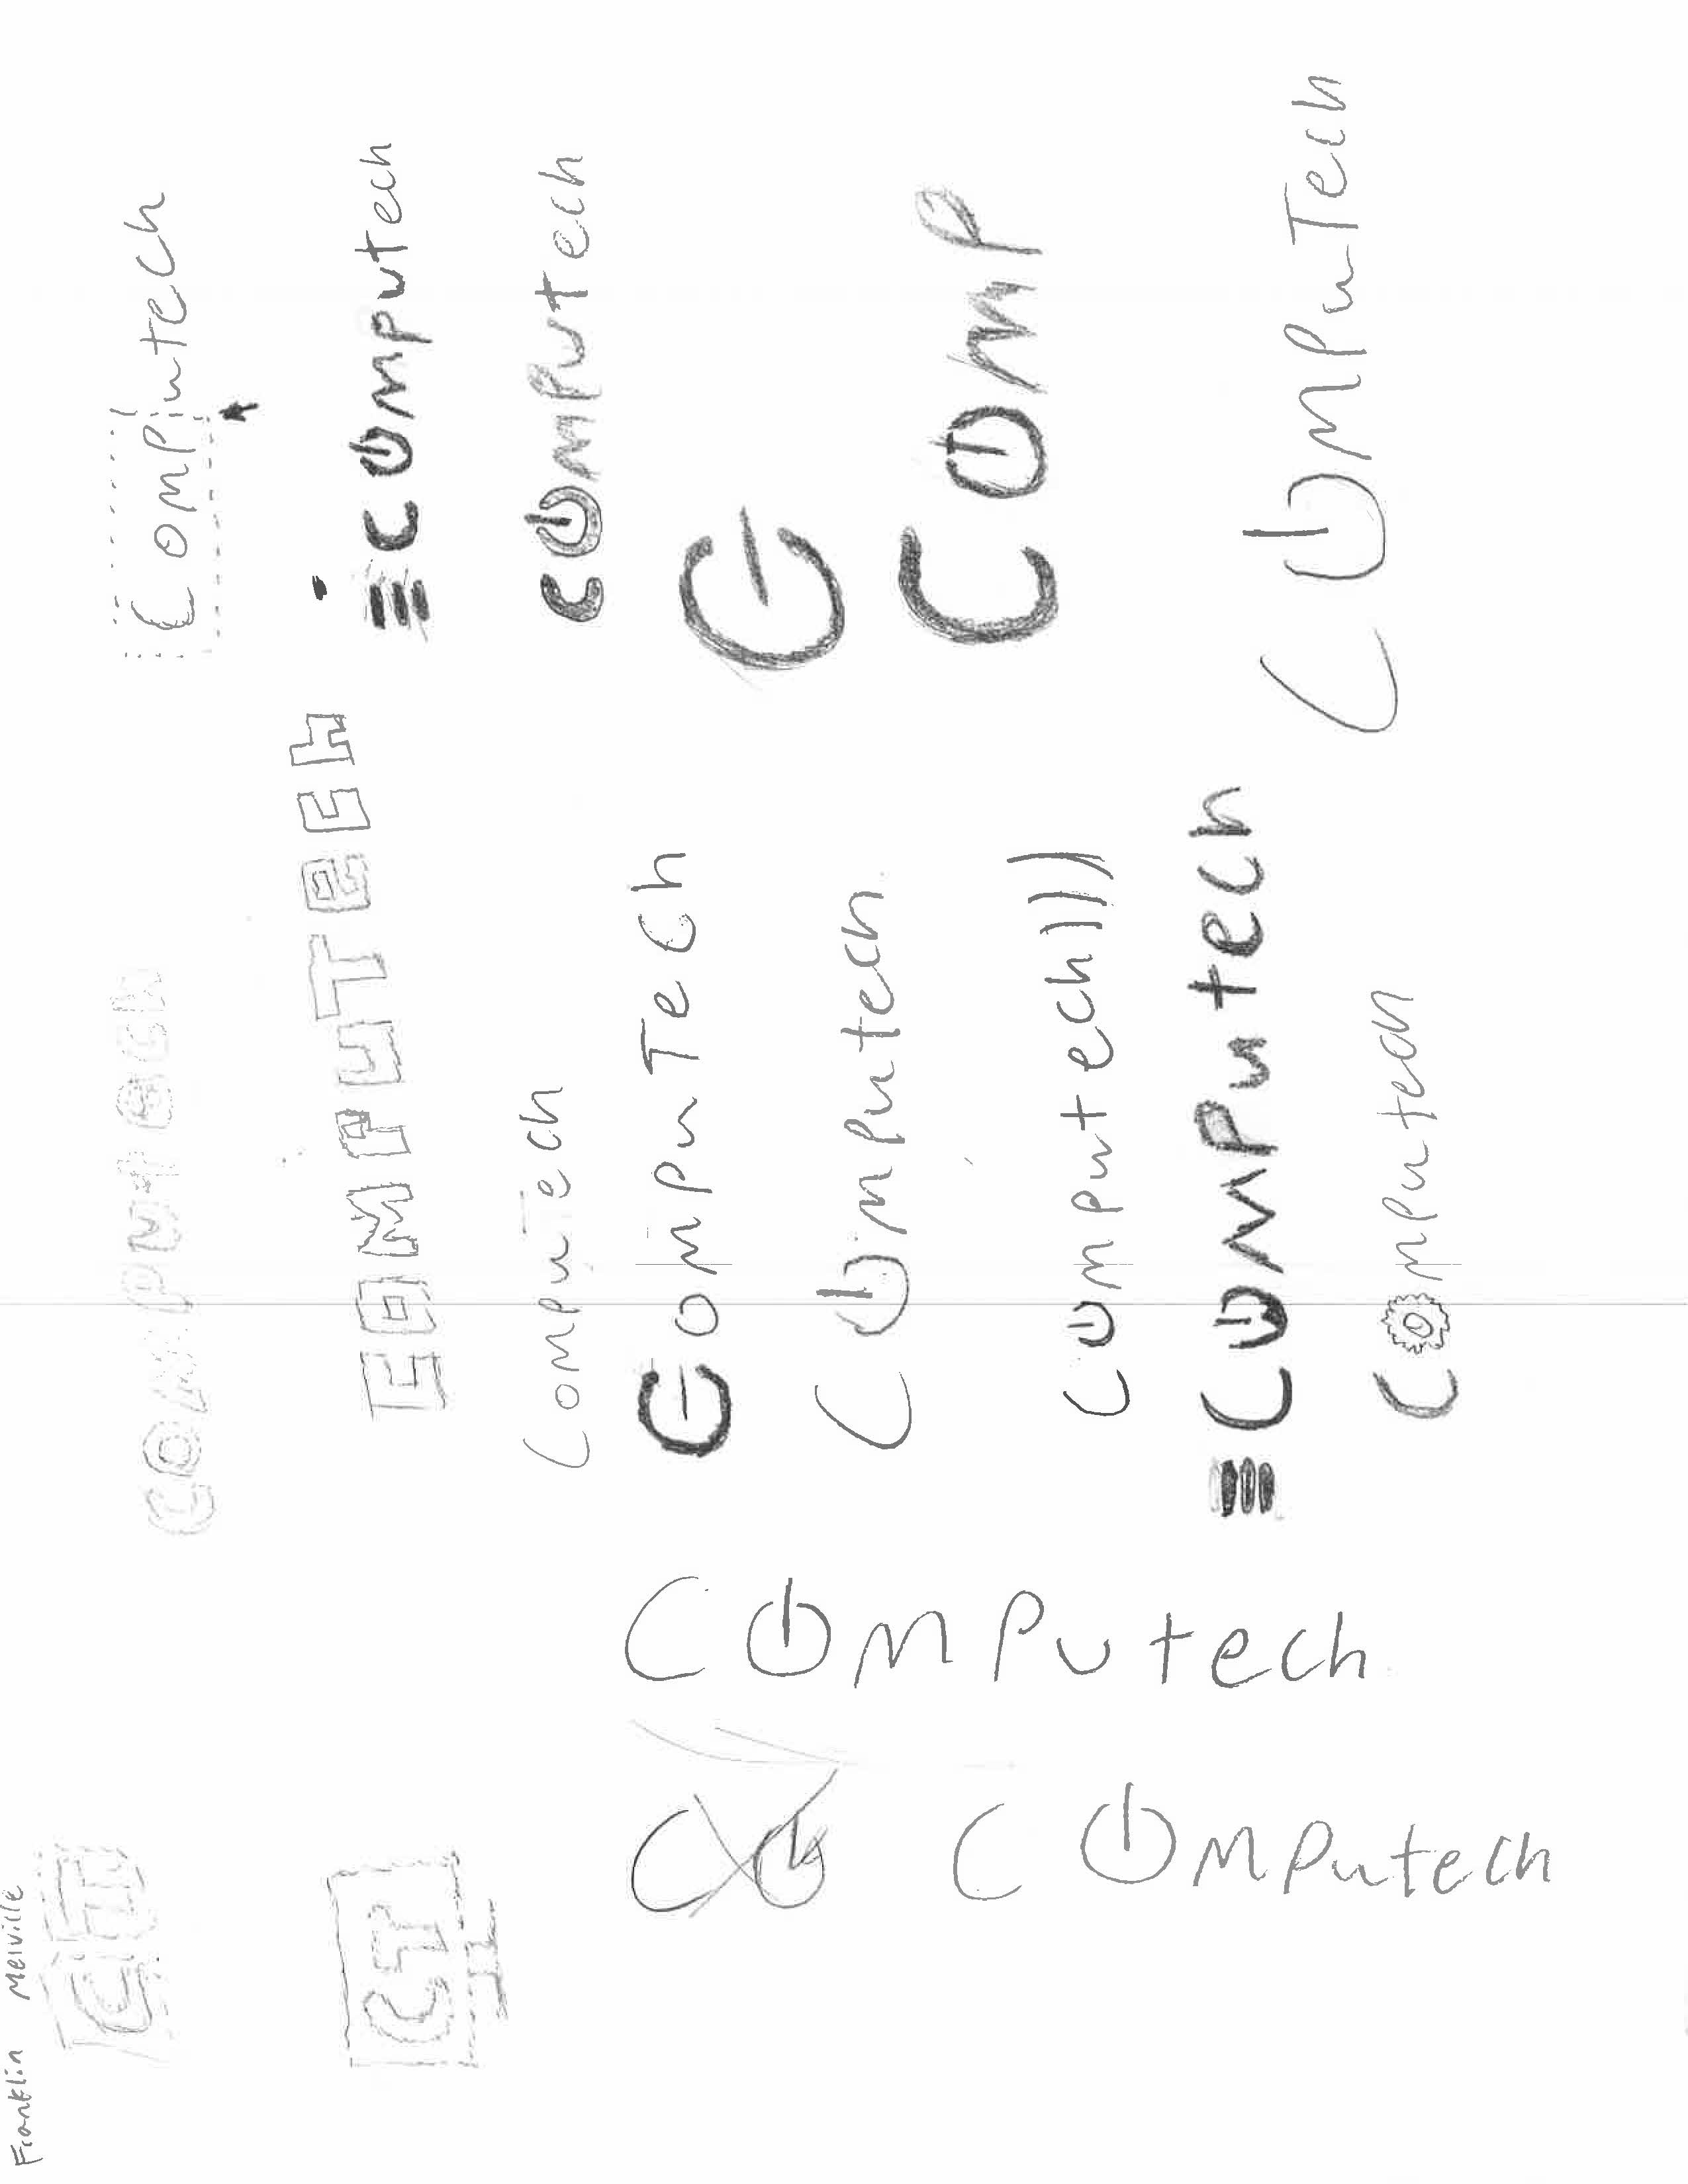 Franklin Melville
CT
CT
Computech
COMPUTeCH
CompuTech
CompuTeCh
Computech
Computech)))
Computech
Computech
Computech
Computech
Computech
C
COMP
COMPuTech
COMPutech
C
COMPutech